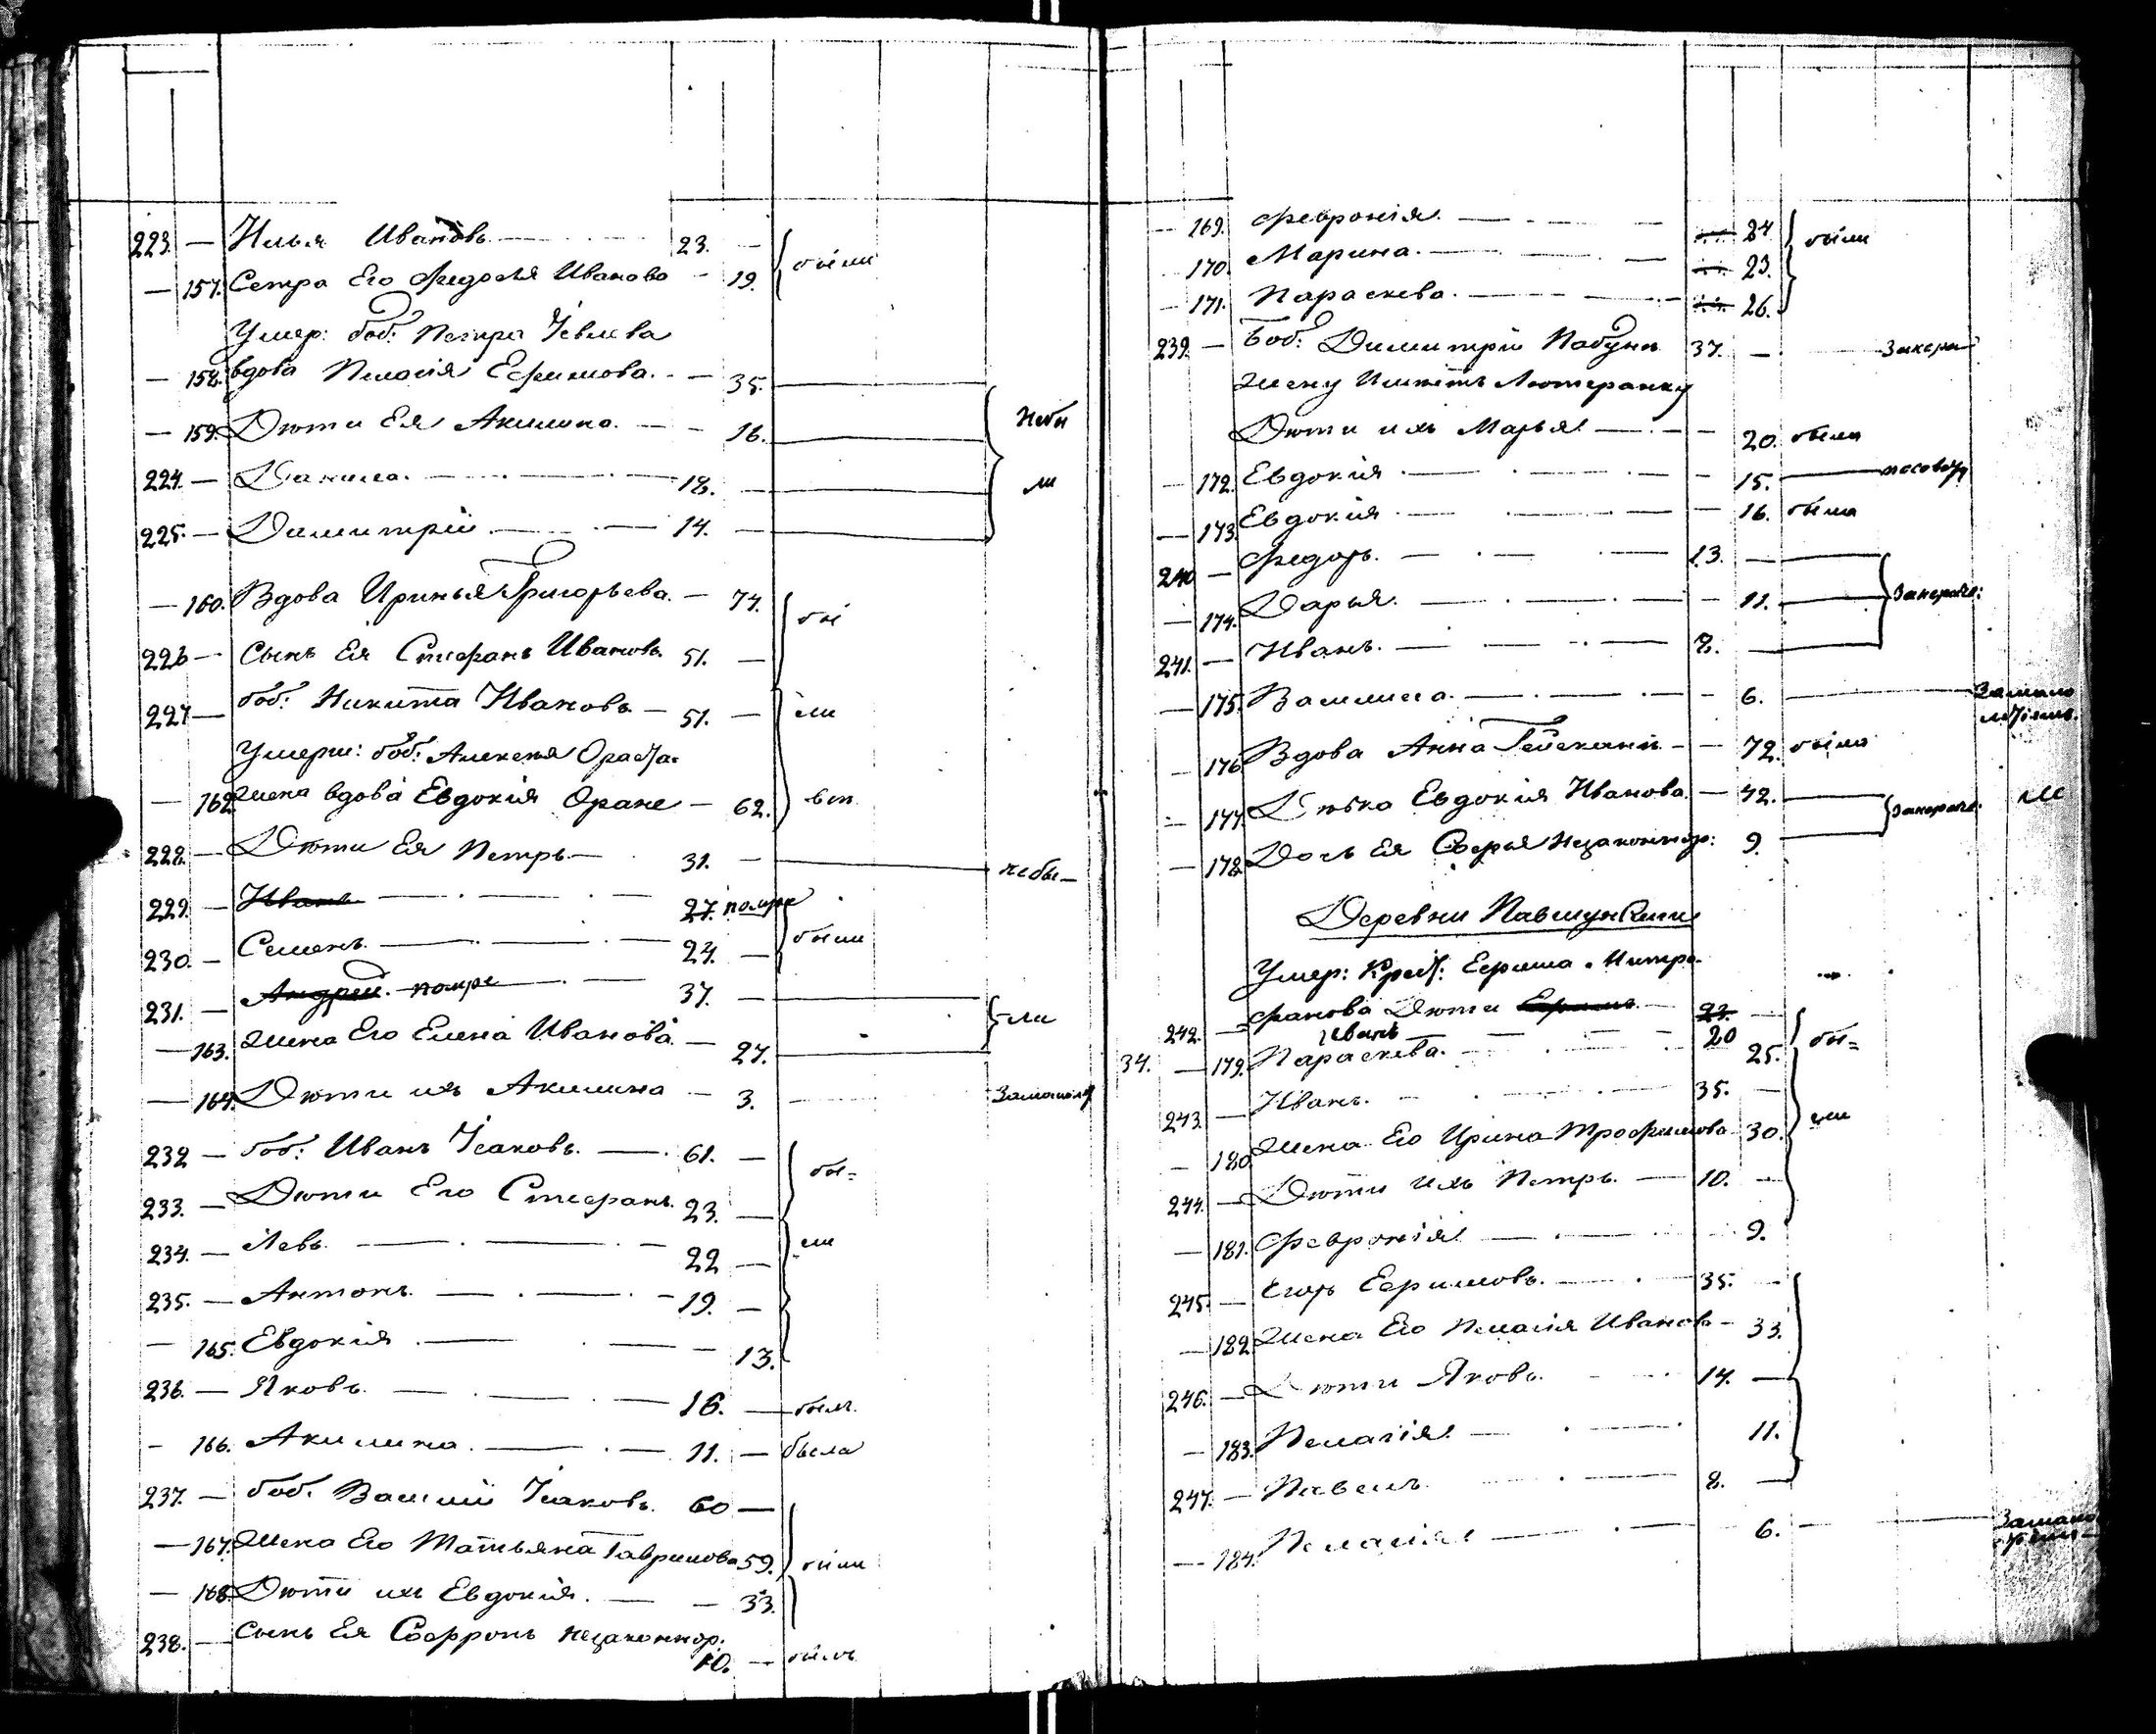 223. — Илья Ивановъ 23. — были
— 157. Сетра Его Федосья Иванова — 19.
Умер: боб: Петра Іевлева
— 158. вдова Пелагія Ефимова. — 35.
— 159. Дѣти Ея Акилина. — 16. Небы
224. — Данила. 18. — ли
225. — Димитрій 14. —
— 160. Вдова Иринья Григорьева. — 74. бы
226 — Сынъ Ея Стефанъ Ивановъ. 51. —
227 — боб: Никита Ивановъ — 51. — ли
Умерш: боб: Алексѣя
— 162. жена вдова Евдокія — 62.
228. — Дѣти Ея Петръ — 31. — небы—
229. — Иванъ 27. помре
230. — Семенъ. 24. — были
231. — Андрей. помре 37. —
— 163. жена Его Елена Иванова. — 27. ли
— 164. Дѣти ихъ Акилина — 3.
232 — боб: Иванъ Исаковъ. — 61. — бы=
233. — Дѣти Его Стефанъ. 23. —
234. — Левъ. 22 — ли
235. — Антонъ. 19. —
— 165. Евдокія — 13.
236. — Яковъ. 16. — былъ.
— 166. Акилина. 11. — была
237. — боб. Василій Исаковъ. 60 —
— 167. жена Его Татьяна Гаврилова 59. были
— 168. Дѣти ихъ Евдокія. — 33.
238. — Сынъ Ея Софронъ незаконнор.
10. — былъ
— 169. Февронія. 24 были
— 170. Марина. 23.
— 171. Параскева. 26.
239. — боб: Димитрій 37. —
жену имѣтъ Лютеранку
Дѣти ихъ Марья — 20. была
— 172. Евдокія — 15.
— 173. Евдокія — 16. была
240 — Федоръ. 13. —
— 174. Дарья. — 11.
241. — Иванъ. 8. —
— 175. Василиса. — 6. Замало
лѣтіемъ.
— 176 Вдова Анна — 72. была
— 177. Дѣвка Евдокія Иванова. — 42.
— 178. Дочь Ея Софья незаконнор: 9.
Деревни
Умер: Крест: Ефима Митро-
242. — фанова Дѣти Ефимъ 23. — бы=
Иванъ 20
34. — 179. Параскева. 25.
243. — Иванъ. 35. —
— 180. жена Его Ирина Трофимова 30. ли
244. — Дѣти ихъ Петръ. — 10. —
— 181. Февронія 9.
245. — Егоръ Ефимовъ. 35. —
— 182. жена Его Пелагія Иванова — 33.
246. — Дѣти Яковъ. 14. —
— 183. Пелагія. 11.
247. — Павелъ 8. —
— 184. Пелагія 6.